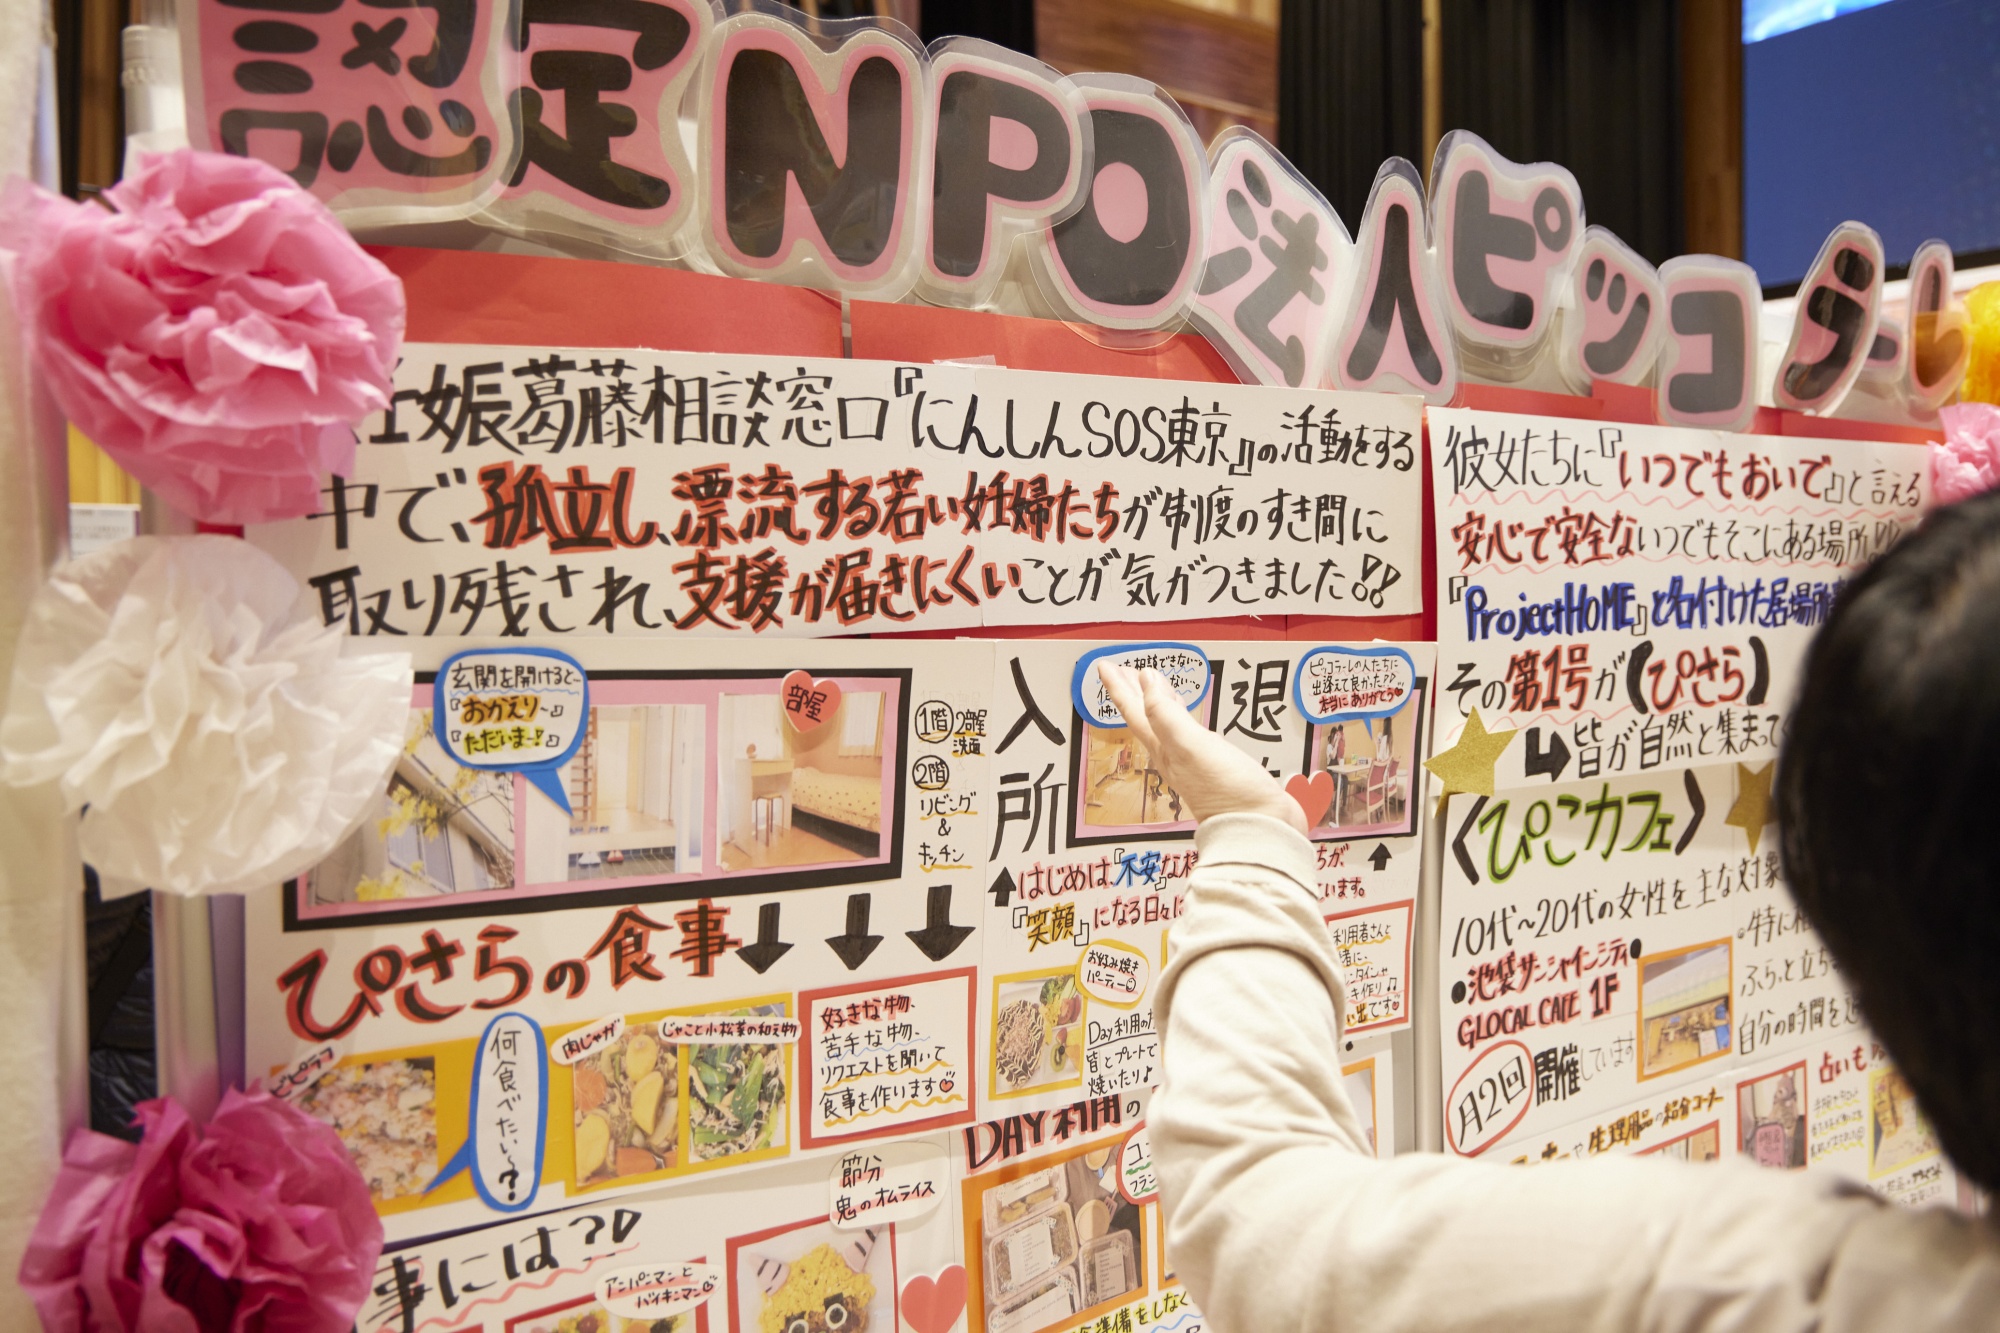 認定NPO法人ピッコラーレ
妊娠葛藤相談窓口『にんしんSOS東京』の活動をする
中で、孤立し、漂流する若い妊婦たちが制度のすき間に
取り残され、支援が届きにくいことが気がつきました!!
彼女たちに『いつでもおいで』と言える
安心で安全ないつでもそこにある場所!!
『ProjectHOME』と名付けた居場所
その第1号が(ぴさら)
皆が自然と集まって
玄関を開けると
『おかえり〜』
『ただいまー!』
部屋
1階 2部屋
洗面
2階
リビング
&
キッチン
入所
も相談できない…
退
ピッコラーレの人たちに
出逢えて良かった!!
本当にありがとう
はじめは、『不安』な様
『笑顔』になる日々に
ちが
います。
ぴさらの食事
ピラフ
何食べたい〜?
肉じゃが
じゃこと小松菜の和え物
好きな物、
苦手な物、
リクエストを聞いて
食事を作います
お好み焼き
パーティー
Day利用の
皆とプレートで
焼いたり♪
利用者さんと
キ作り♫
い出です
DAY利用の
節分
鬼のオムライス
事には?!
アンパンマンと
バイキンマン
準備をしなく
〈ぴこカフェ〉
10代〜20代の女性を主な対象
•池袋サンシャインシティ•
GLOCAL CAFE 1F
月2回開催しています
特に
ふらっと立ち
自分の時間を
占いも
ーナーや生理用品の紹介コーナー